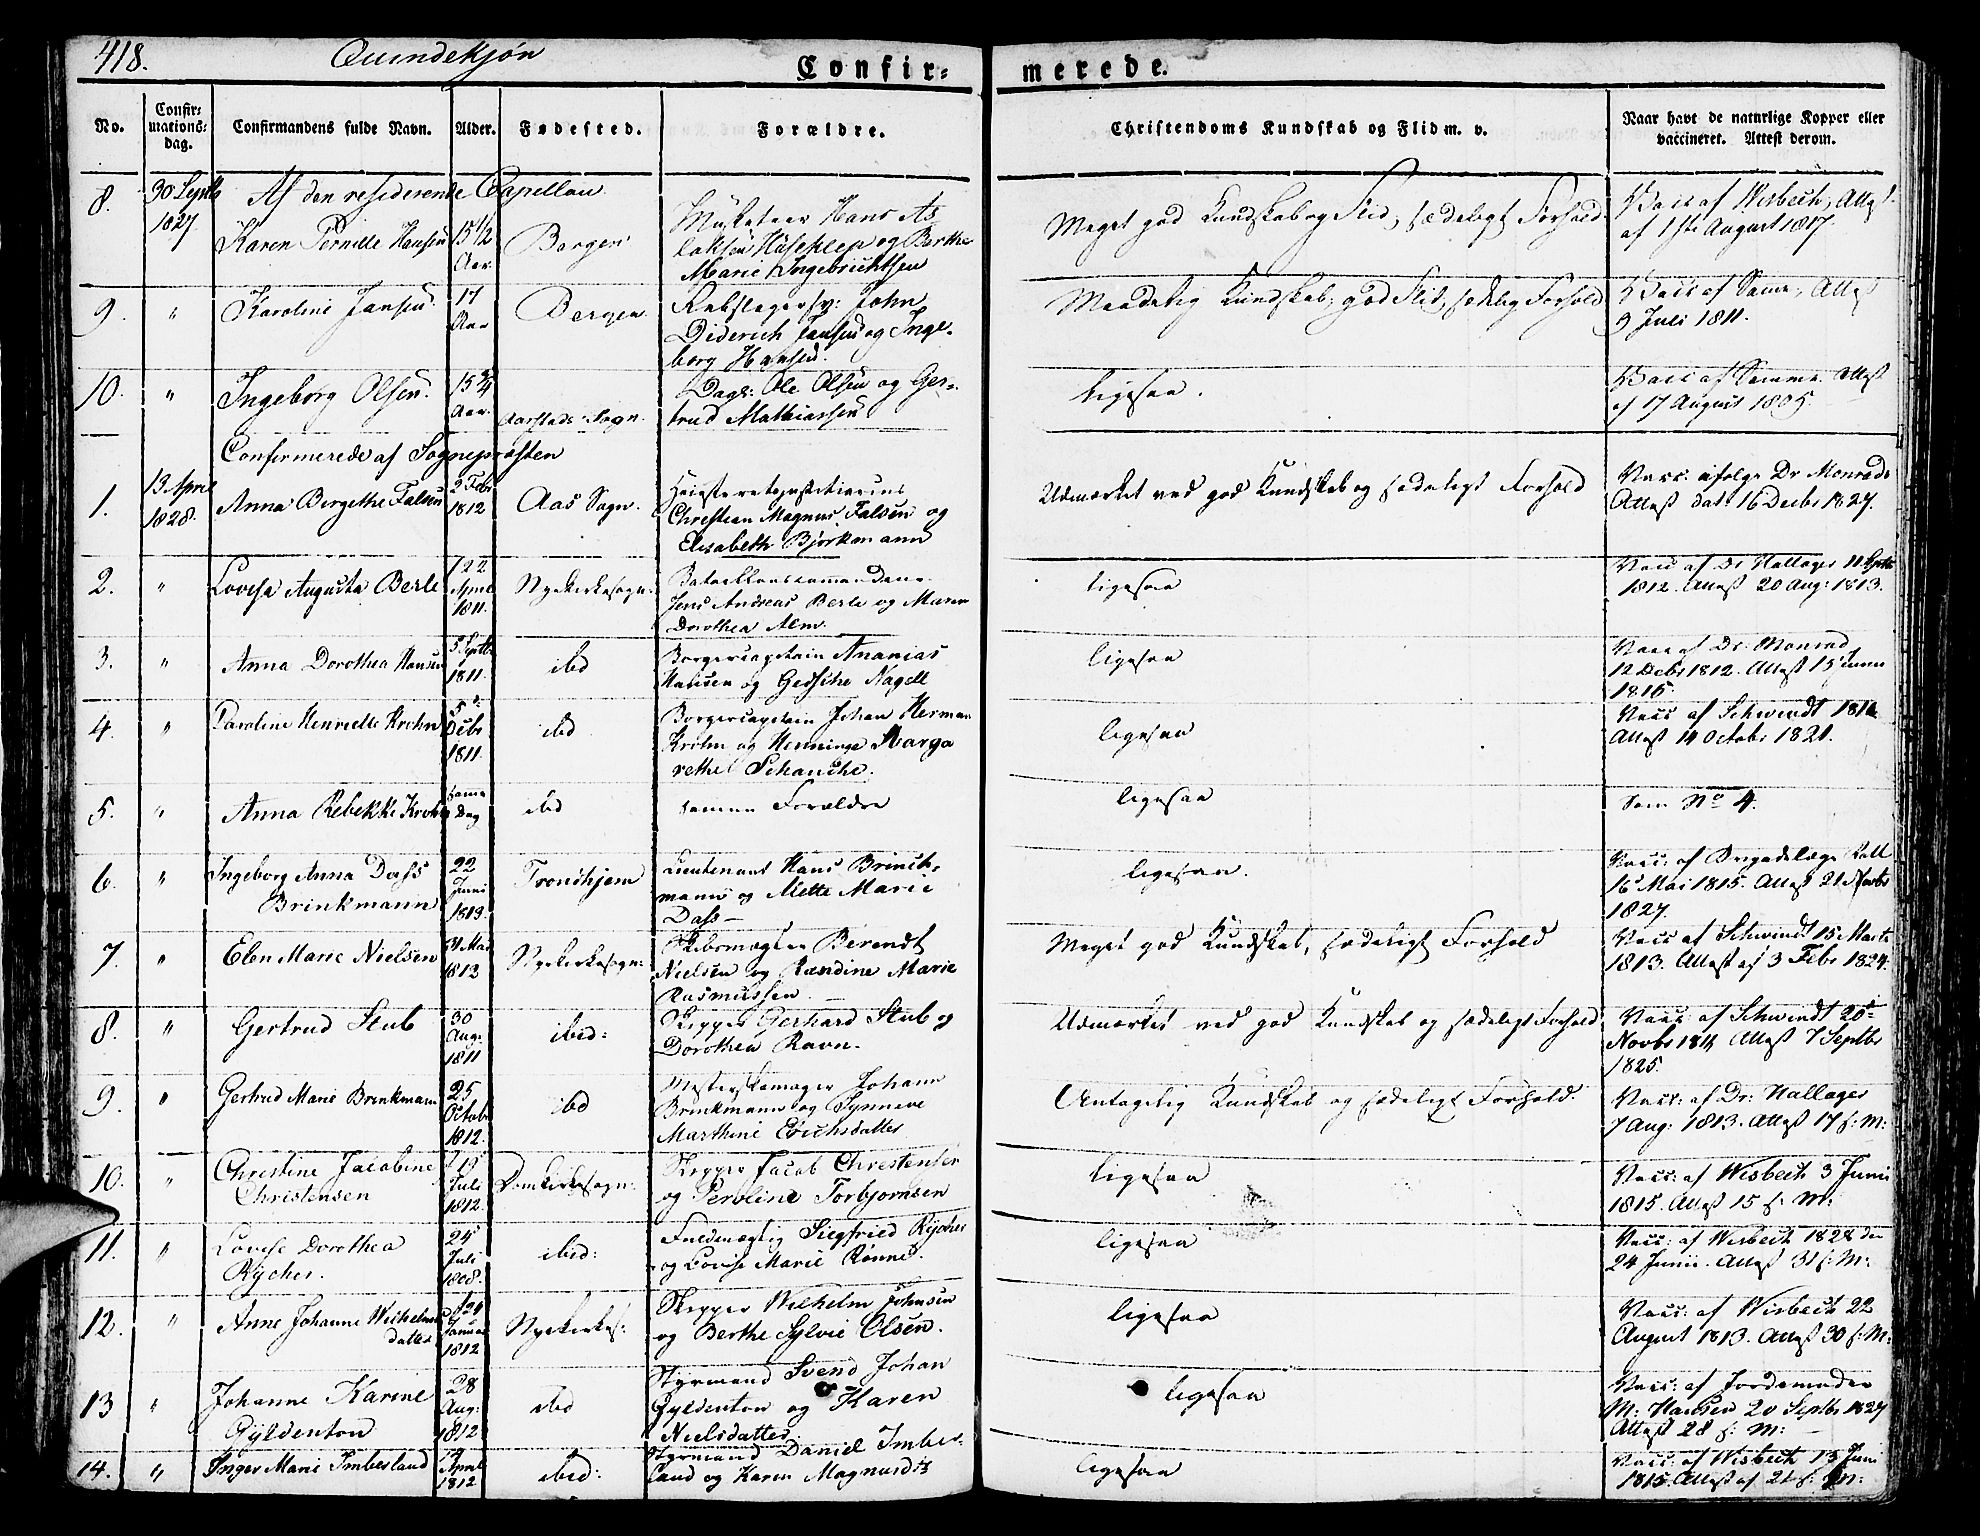 418. Quindekjøn
Confir- merede.
No. Confir-mations-dag. Confirmandens fulde Navn. Alder. Fødested. Forældre. Christendoms Kundskab og Flid m. v. Naar havt de naturlige Kopper eller vaccineret. Attest derom.
8. 30 Septb 1827 Af den residerende Capellan
Karen Pernille Hansen 15 1/2 Aar. Bergen
Musketeer Hans As
laksen og Berthe
Marie Ingebrichtsen
Meget god Kundskab og Flid, sædeligt Forhold
Vacc af Wisbech, Attest
af 1ste August 1817.
9. " Karoline Jansen 17 Aar Bergen.
Rebslagersv: John
Diderich Jansen og Inge-
borg Hansen.
Maadelig Kundskab, god Flid, sædelig Forhold
Vacc af Samme, Attest
9 Juli 1811.
10. " Ingeborg Olsen. 15 3/4 Aar. Aarstads Sogn.
Dagk: Ole Olsen og Ger-
trud Mathiassen
ligesaa.
Vacc af Samme Attest
af 17 August 1805.
Confirmerede af Sognepræsten
1. 13 April 1828. Anna Bergethe Falsen 2 Febr 1812 Aas Sogn.
Høiesteretsjustitiarius
Christian Magnus Falsen og
Elisabeth Bjørkmann
Udmærket ved god Kundskab og sædeligt Forhold
Vacc. ifølge Dr Monrads
Attest dat: 16 Decbr 1827.
2. " Lovise Augusta Berle 22 April 1811. Nyekirkesogn.
Jens Andreas Berle og Maren
Dorothea Alm.
ligesaa
Vacc af Dr Hallager 11
1812. Attest 20 Aug: 1813.
3. " Anna Dorothea Hansen 5 Septb 1811. ibd
Borgercapitain Ananias
Hansen og Gedsche Nagel
ligesaa
Vacc af Dr: Monrad
12 Debr 1812. Attest 15 Junii
1815.
4. " Caroline Henriette Krohn 5 Debr 1811. ibd
Borgercapitain Johan Herman
Krohn og Henninge Marga
rethe Schanche.
ligesaa
Vacc af Schwindt 1812
Attest 14 Octobr 1821.
5. " Anna Rebekke Krohn samme Dag ibd
samme Forældre
ligesaa
Som No 4.
6. " Ingeborg Anna Dass
Brinkmann 22 Juni 1813. Trondhjem
Lieutenant Hans Brinch-
mann og Mette Marie
Dass —
ligesaa.
Vacc: af Brigadelæge
16 Mai 1815. Attest 21
1827.
7. " Elen Marie Nielsen 31 Mai 1813 Nyekirkesogn:
Berendt
Nielsen og Randine Marie
Rasmussen —
Meget god Kundskab, sædeligt Forhold
Vacc af Schwindt 15 Marts
1813. Attest af 3 Febr 1824.
8. " Gertrud Stub 30 Aug: 1811 ibid:
Skipper Gerhard Stub og
Dorothea Ravn.
Udmærket ved god Kundskab og sædeligt Forhold
Vacc: af Schwindt 20
Novbr 1811 Attest 7 Septbr
1825.
9. " Gertrud Marie Brinkmann 25 Octobr 1812. ibd
Mesterskomager Johann
Brinkmann og Synneve
Marthine Erichsdatter
Antagelig Kundskab og sædeligt Forhold.
Vacc: af Dr: Hallager
7 Aug: 1813. Attest 17 s: M:
10. " Christine Jacobine
Christensen 19 Juli 1812. Domkirkesogn:
Skipper Jacob Christensen
og Peroline Torbjørnsen
ligesaa
Vacc: af Wisbech 3 Junii
1815. Attest 15 s: M:
11. " Lovise Dorothea
Rycher. 24 Juli 1808. ibid:
Fuldmægtig Siegfried Rycher
og Lovise Marie Rønne.
ligesaa
Vacc: af Wisbech 1828 den
24 Junii. Attest 31 s: M:
12. " Anne Johanne Wilhelms
datter 24 Januar 1812 Nyekirkes:
Skipper Wilhelm Johnsen
og Berthe Sylvie Olsen.
ligesaa
Vacc: af Wisbech 22
August 1813. Attest 30 s: M:
13 " Johanne Karine
Gyldenton 28 Aug: 1812 ibd
Styrmand Svend Johan
Gyldenton og Karen
Nielsdatter
ligesaa
Vacc: af Jordemoder
M: Hansen 20 Septbr 1827
Attest 28 s: M: —
14. " Inger Marie Imberland 19 April 1812 ibid:
Styrmand Daniel Imber-
land og Karen Magnusdtr
ligesaa
Vacc: af Wisbech 13 Juni
1815. Attest af 21 s: M: